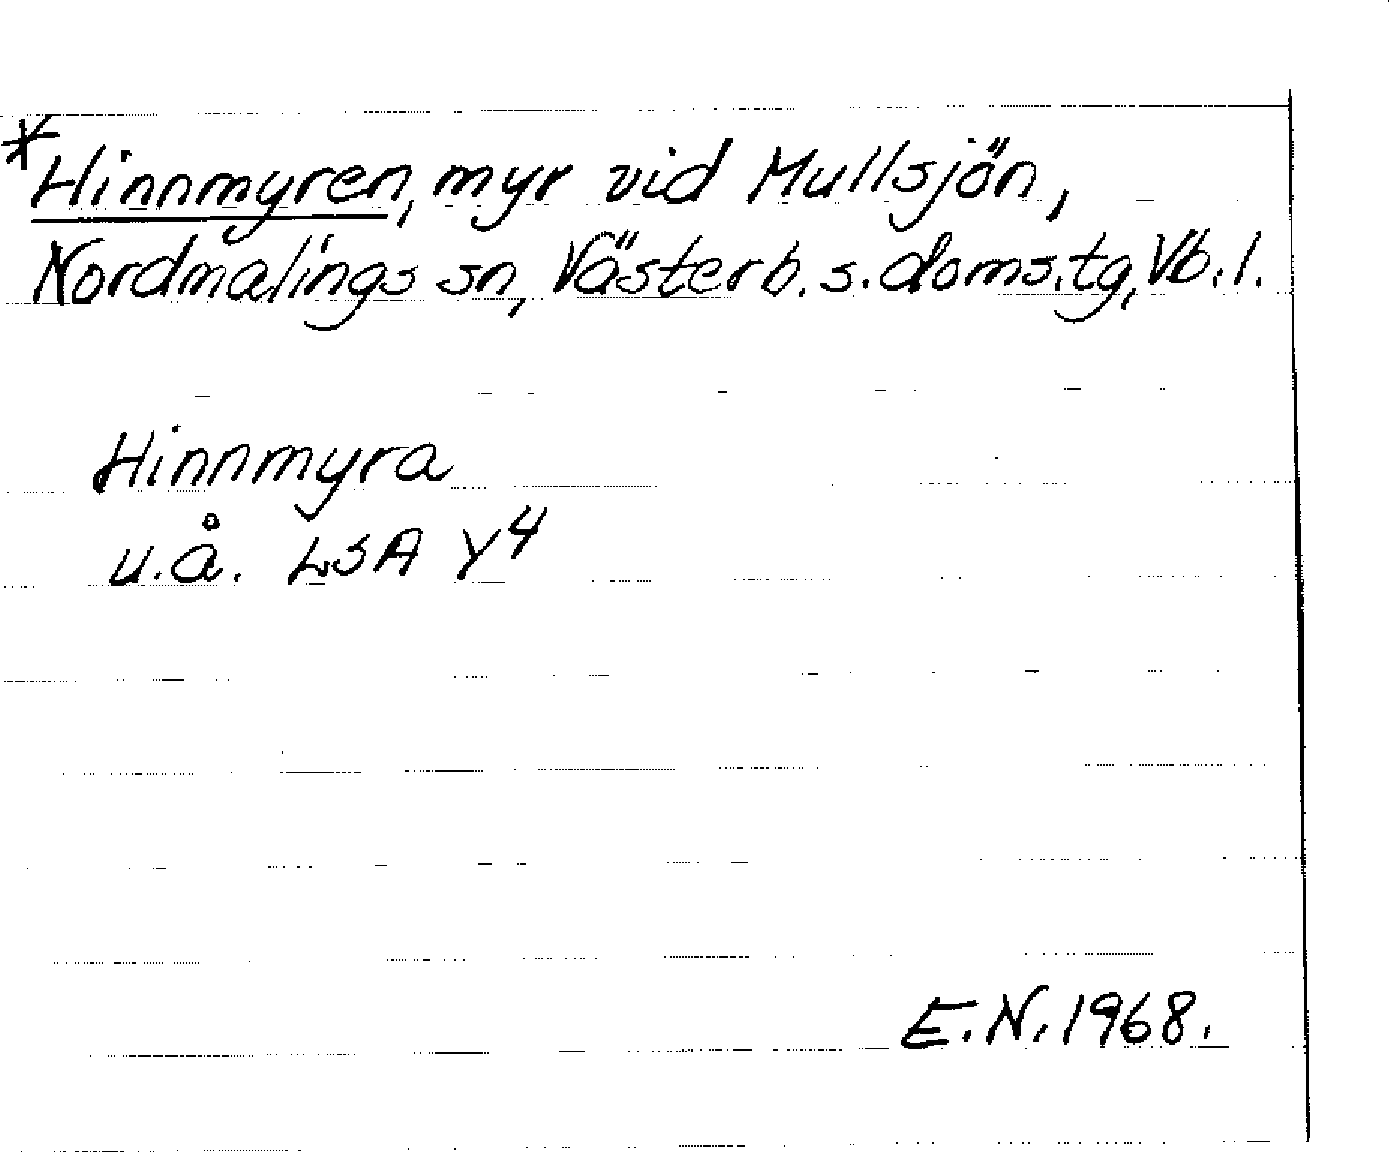 *Hinnmyren, myr vid Mullsjön,
Nordmalings sn, Västerb. s. doms. tg, Vb. l.
Hinnmyra
u.å. LSA Y4
E.N. 1968.